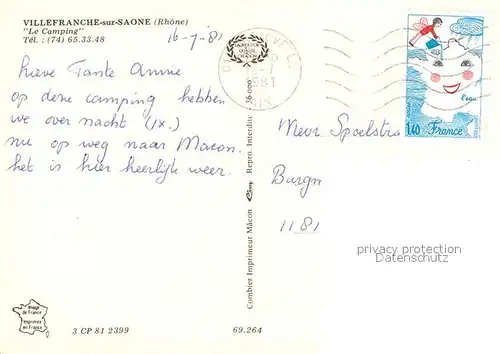 VILLEFRANCHE-sur-SAONE (Rhône)
"Le Camping"
Tél. : (74) 65.33.48
16-7-81
Lieve Tante Annie
op deze camping hebben
we over nacht (1x.)
nu op weg naar Macon.
het is hier heerlijk weer.
1981
AIN
1,40 France
l'eau
Mevr Spoelstra
Burgn
1181
privacy protection
Datenschutz
Combier Imprimeur Mâcon
Repro. Interdite
36-000
Image
de France
Imprimée
en France
3 CP 81 2399
69.264